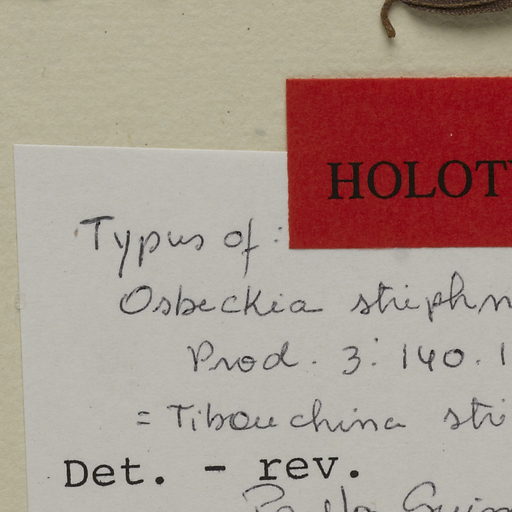 HOLOT
Typus of:
Osbeckia striphn
Prod. 3: 140. 1
= Tibouchina stri
Det. - rev.